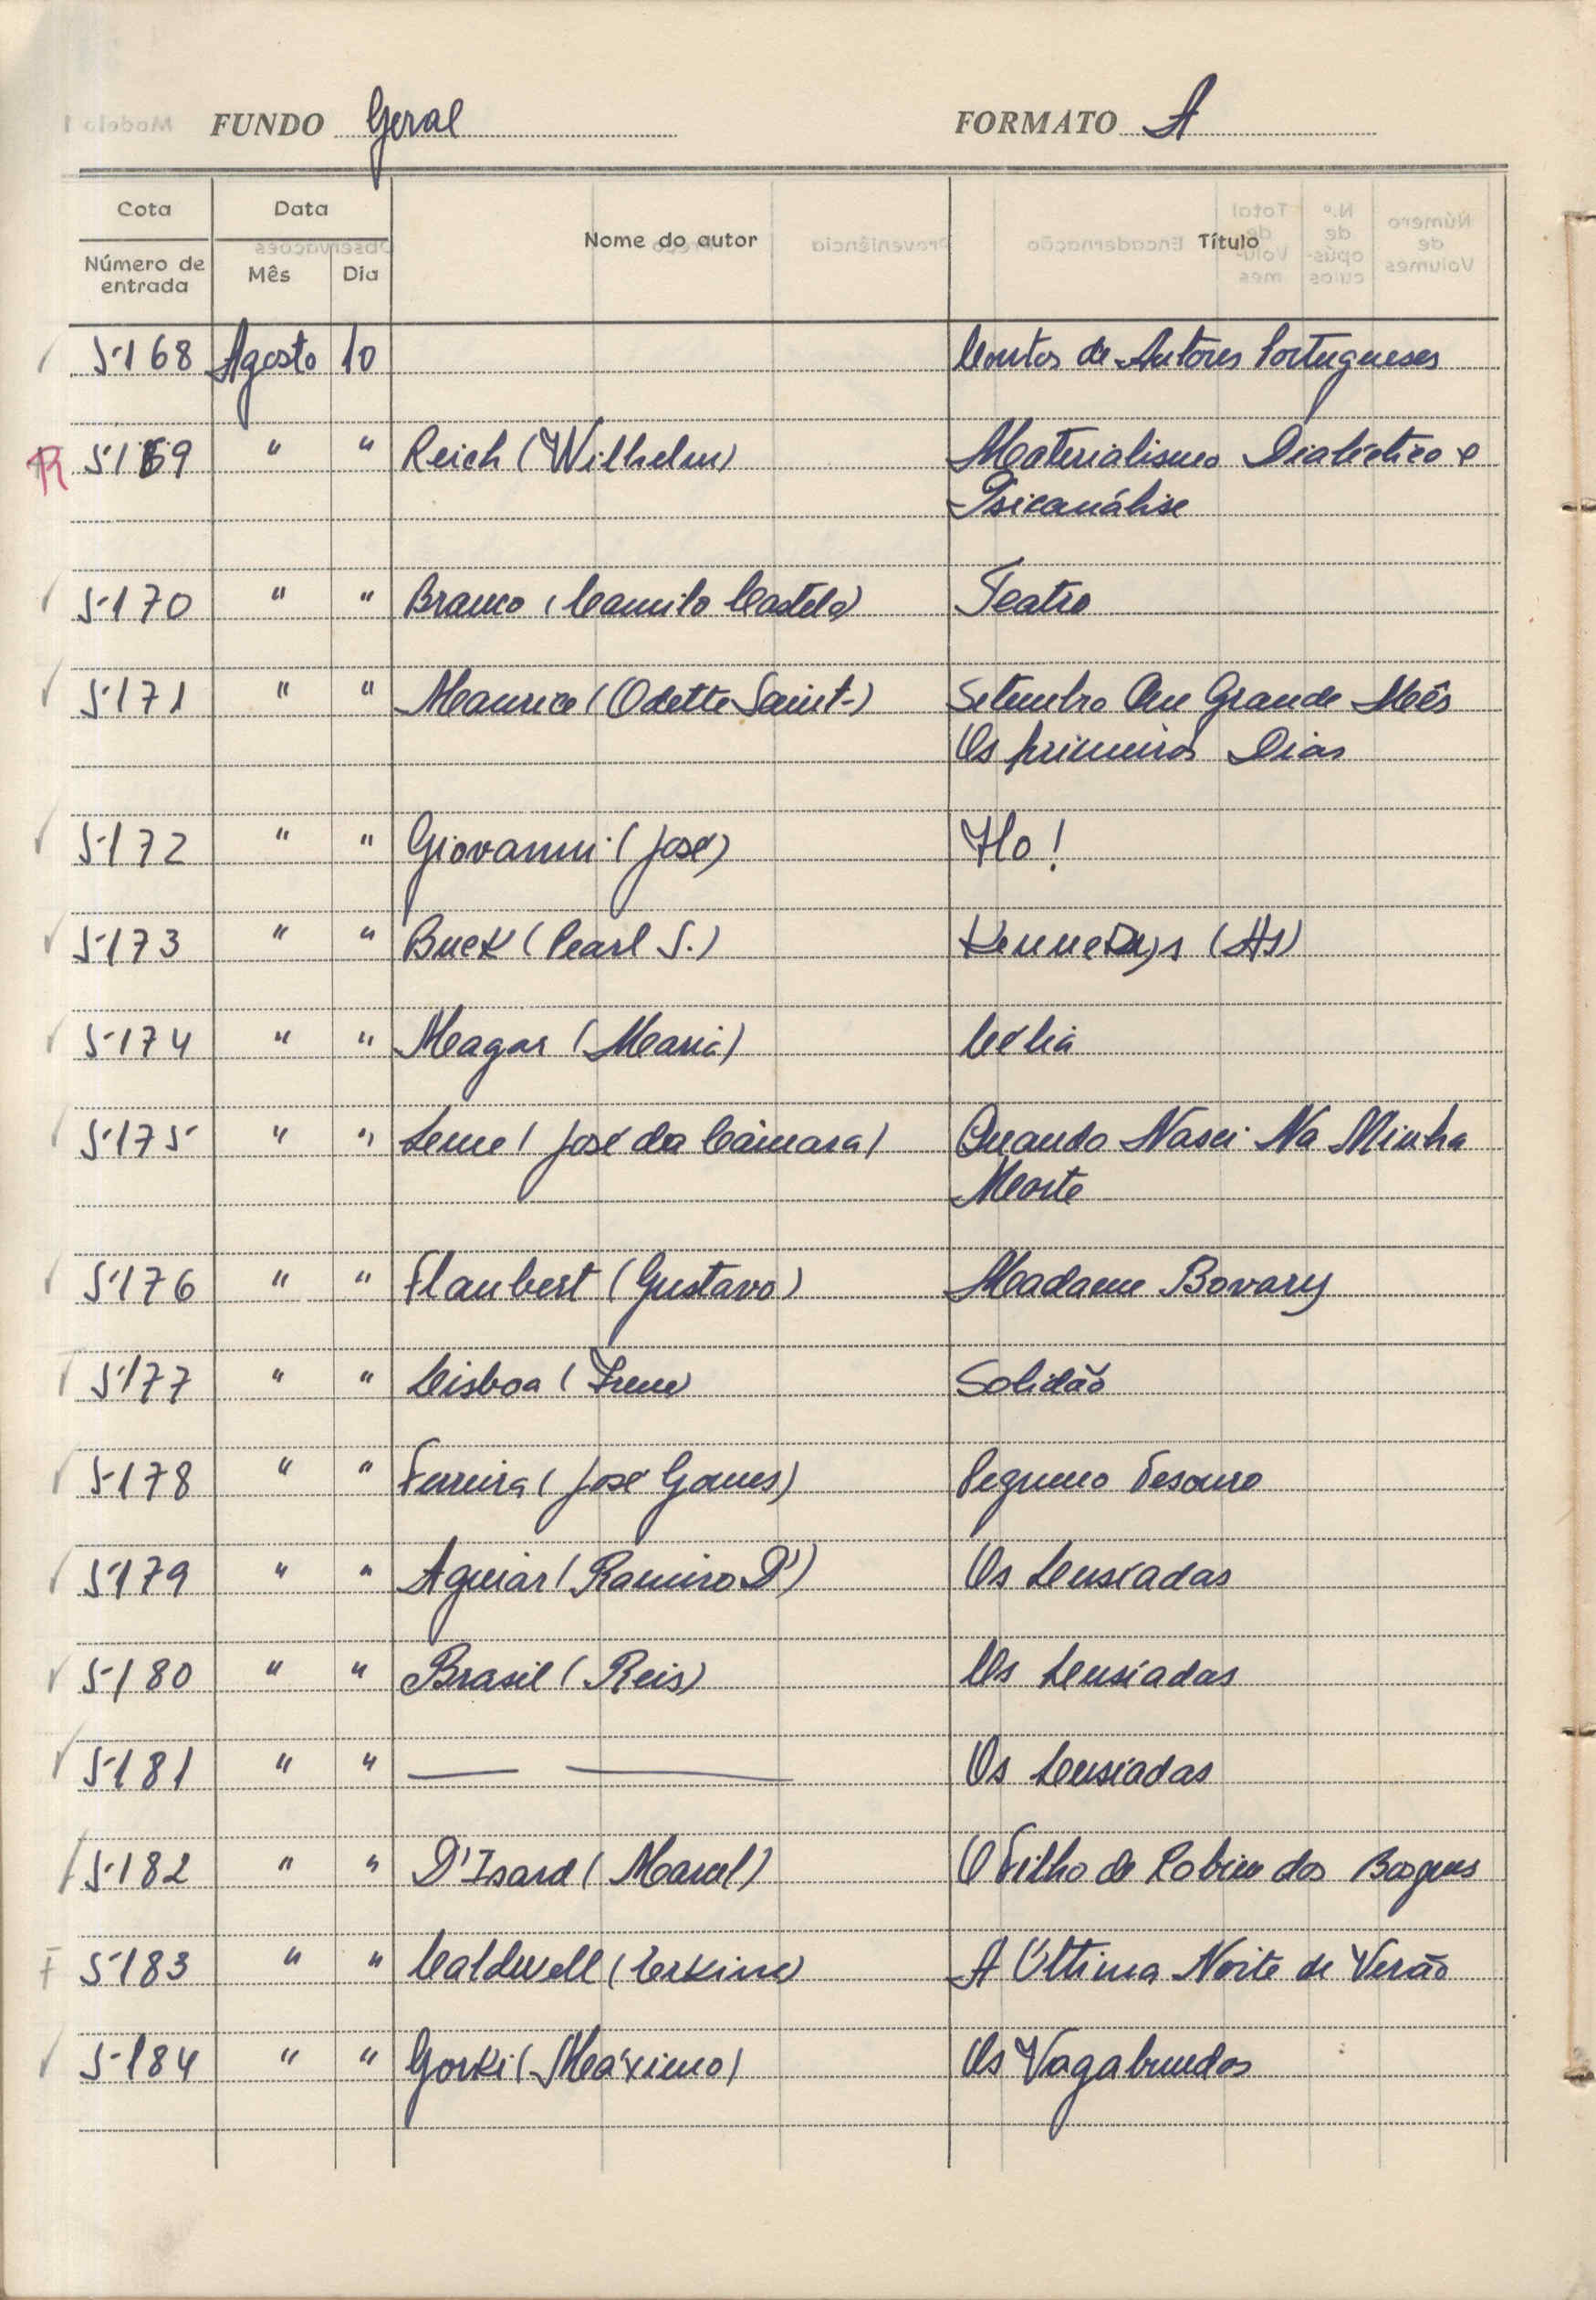 FUNDO Geral FORMATO A
Cota Data Nome do autor Título
Número de entrada Mês Dia
5168 Agosto 10 Contos de Autores Portugueses
R 5169 " " Reich (Wilhelm) Materialismo Dialéctico e
Psicanálise
5170 " " Branco (Camilo Castelo) Teatro
5171 " " Maurice (Odette Saint-) Setembro Um Grande Mês
Os primeiros Dias
5172 " " Giovanni (José) Ho!
5173 " " Buck (Pearl S.) Kennedys (As)
5174 " " Magar (Maria) Célia
5175 " " Leme (José da Câmara) Quando Nasci Na Minha
Morte
5176 " " Flaubert (Gustavo) Madame Bovary
5177 " " Lisboa (Irene) Solidão
5178 " " Ferreira (José Gomes) Pequeno Tesouro
5179 " " Aguiar (Ramiro D') Os Lusíadas
5180 " " Brasil (Reis) Os Lusíadas
5181 " " — — Os Lusíadas
5182 " " D'Isard (Marcel) O Filho de Robim dos Bosques
F 5183 " " Caldwell (Erskine) A Última Noite de Verão
5184 " " Gorki (Máximo) Os Vagabundos